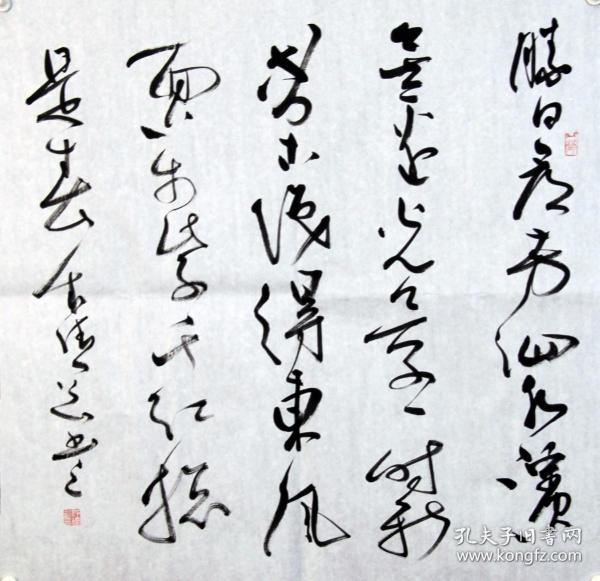 勝日尋芳泗水濱
無邊光景一时新
等閒識得東風
面万紫千红總
是春
孔夫子旧书网
www.kongfz.com